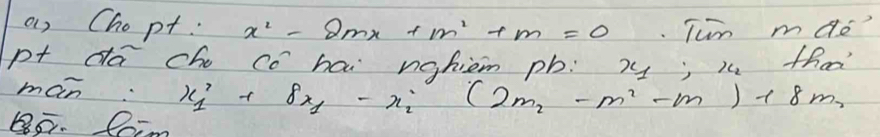 a, Cho pt: x² - 2mx + m² + m = 0 . Tìm m để
pt đã cho có hai nghiệm pb: x₁ ; x₂ thoả
mãn : x₁² + 8x₁ - x₂² (2m₂ - m² - m) + 8m₂
Bài làm